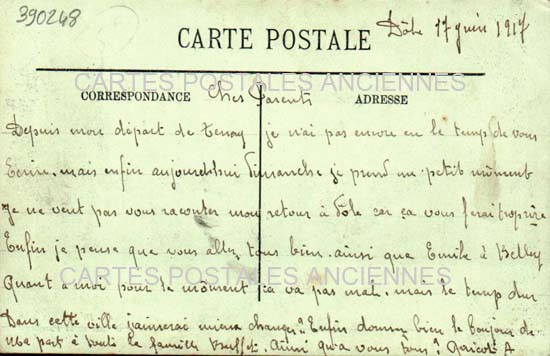 390248
Dôle 17 Juin 1917
CARTE POSTALE
CARTES POSTALES ANCIENNES
CORRESPONDANCE Chers Parents ADRESSE
Depuis mon départ de Tenay je n'ai pas encore eu le temps de vous
Ecrire. mais enfin aujourd'hui Dimanche je prend un petit moment
Je ne veut pas vous raconter mon retour à Dôle car ça vous ferai trop rire
Enfin je pense que vous allez tous bien. ainsi que Emile à Belley
CARTES POSTALES ANCIENNES
Quant a moi pour le moment ça va pas mal. mais le temp dur
Dans cette ville j'aimerai mieux changer. Enfin donner bien le bonjour de
ma part à toute la famille. Ainsi qu'a vous tous.